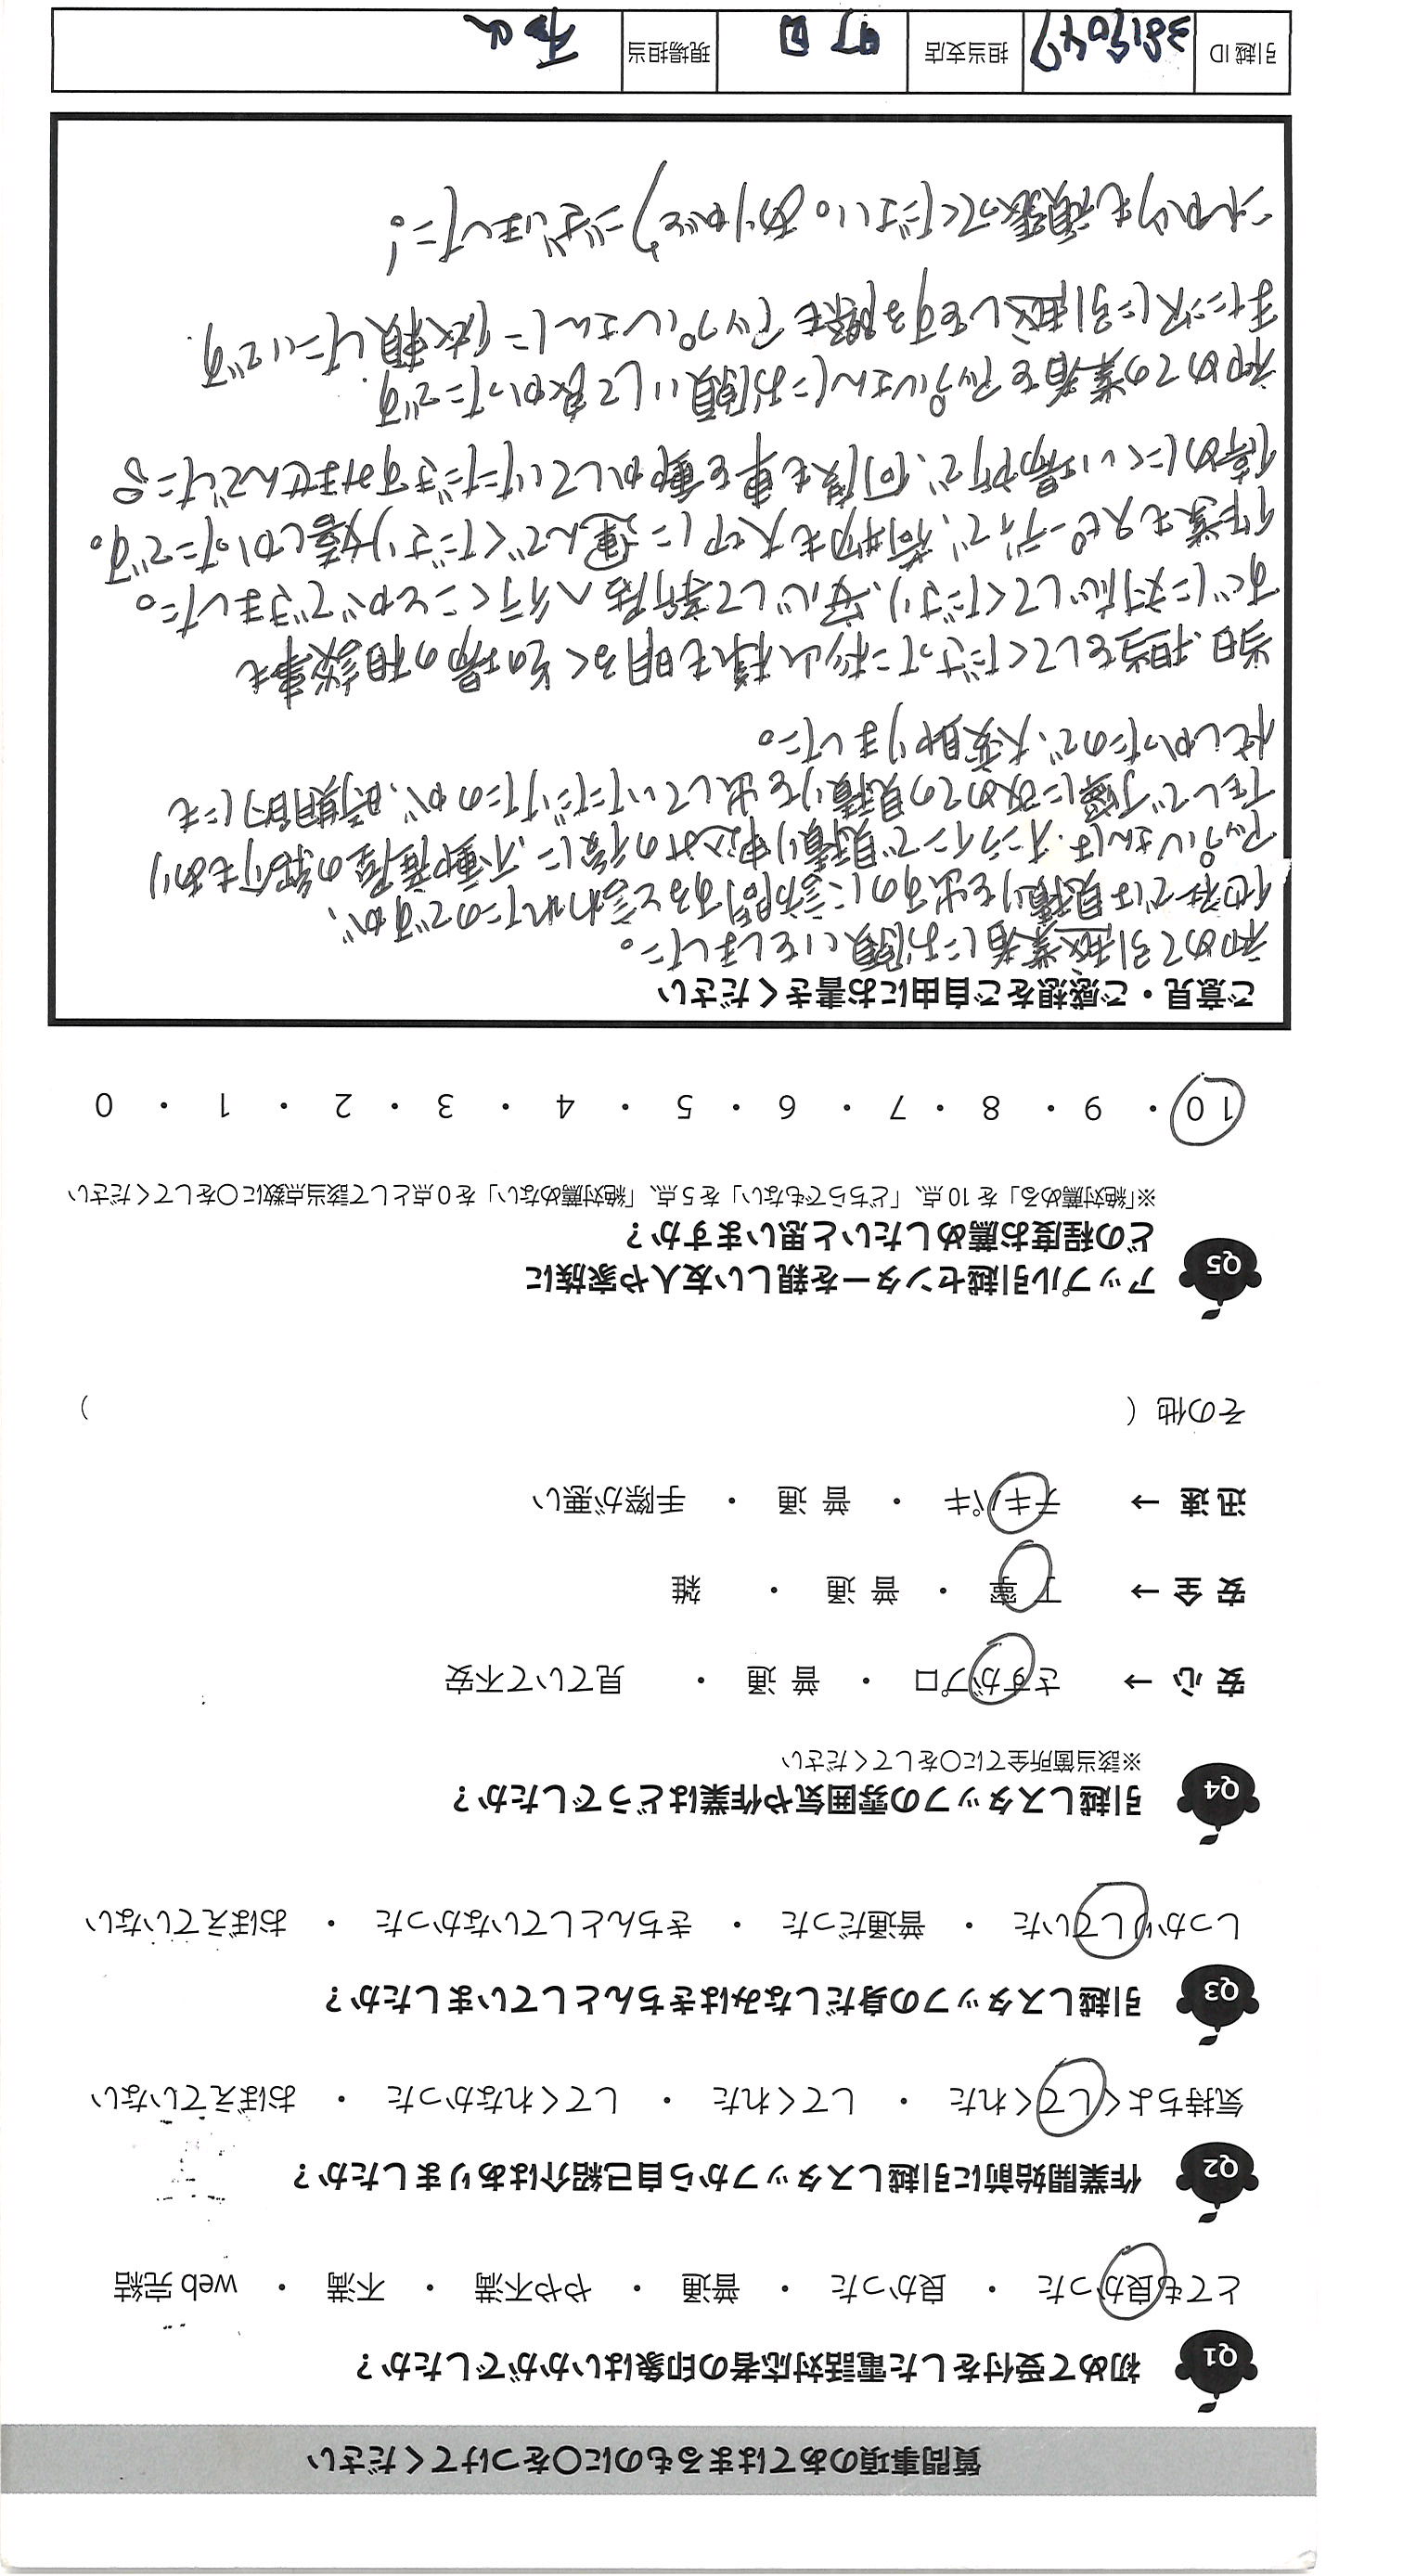 質問事項のあてはまるものに○をつけてください
Q1 初めて受付をした電話対応者の印象はいかがでしたか？
とても良かった ・ 良かった ・ 普通 ・ やや不満 ・ 不満 ・ web 完結
Q2 作業開始前に引越しスタッフから自己紹介はありましたか？
気持ちよくしてくれた ・ してくれた ・ してくれなかった ・ おぼえていない
Q3 引越しスタッフの身だしなみはきちんとしていましたか？
しっかりしていた ・ 普通だった ・ きちんとしていなかった ・ おぼえていない
Q4 引越しスタッフの雰囲気や作業はどうでしたか？
※該当箇所全てに○をしてください
安 心 → さすがプロ ・ 普 通 ・ 見ていて不安
安 全 → 丁 寧 ・ 普 通 ・ 雑
迅 速 → テキパキ ・ 普 通 ・ 手際が悪い
その他（ ）
Q5 アップル引越センターを親しい友人や家族に
どの程度お薦めしたいと思いますか？
※「絶対薦める」を 10 点、「どちらでもない」を 5 点、「絶対薦めない」を 0 点として該当点数に○をしてください
10 ・ 9 ・ 8 ・ 7 ・ 6 ・ 5 ・ 4 ・ 3 ・ 2 ・ 1 ・ 0
ご意見・ご感想をご自由にお書きください
初めて引越業者にお願いをしました。
他社では見積りを出すのに訪問すると言われたのですが、
アップルさんは、オンラインで見積り申込みの後に、不動産屋の紹介もあり
在して丁寧に改めての見積りを出していただけたのが、時期的にも
忙しかったので、大変助りました。
当日、担当をしてくださった杉山様も明るくその場の相談事も
すぐに対応してくださり、安心して新居へ行くことができました。
作業もスピーディで、荷物も大切に運んでくださり嬉しかったです。
停めにくい場所で、何度も車を動かしていただきすみませんでした
初めての業者をアップルさんにお願いして良かったです。
また次に引越しをする際もアップルさんに依頼したいです。
これからも頑張ってください。ありがとうございました！
引越 ID 3819047 担当支店 町田 現場担当